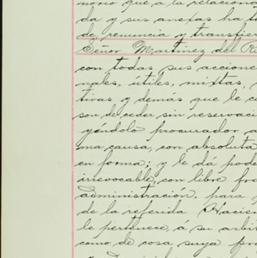 mono que a la relaciona
da y sus anefas ha t
de renuncia y transfie
Señor Martinez del R
con todas sus accione
nales, útiles, mistas,
tivas, y demás que le c
son, de ceder sin reservac
yéndolo procurador a
ma causa, con absolut
en forma; y le dá pode
irrevocable, con libre fra
administración, para
de la referida Hacien
le pertenece, á su arbi
como de cosa suya pro